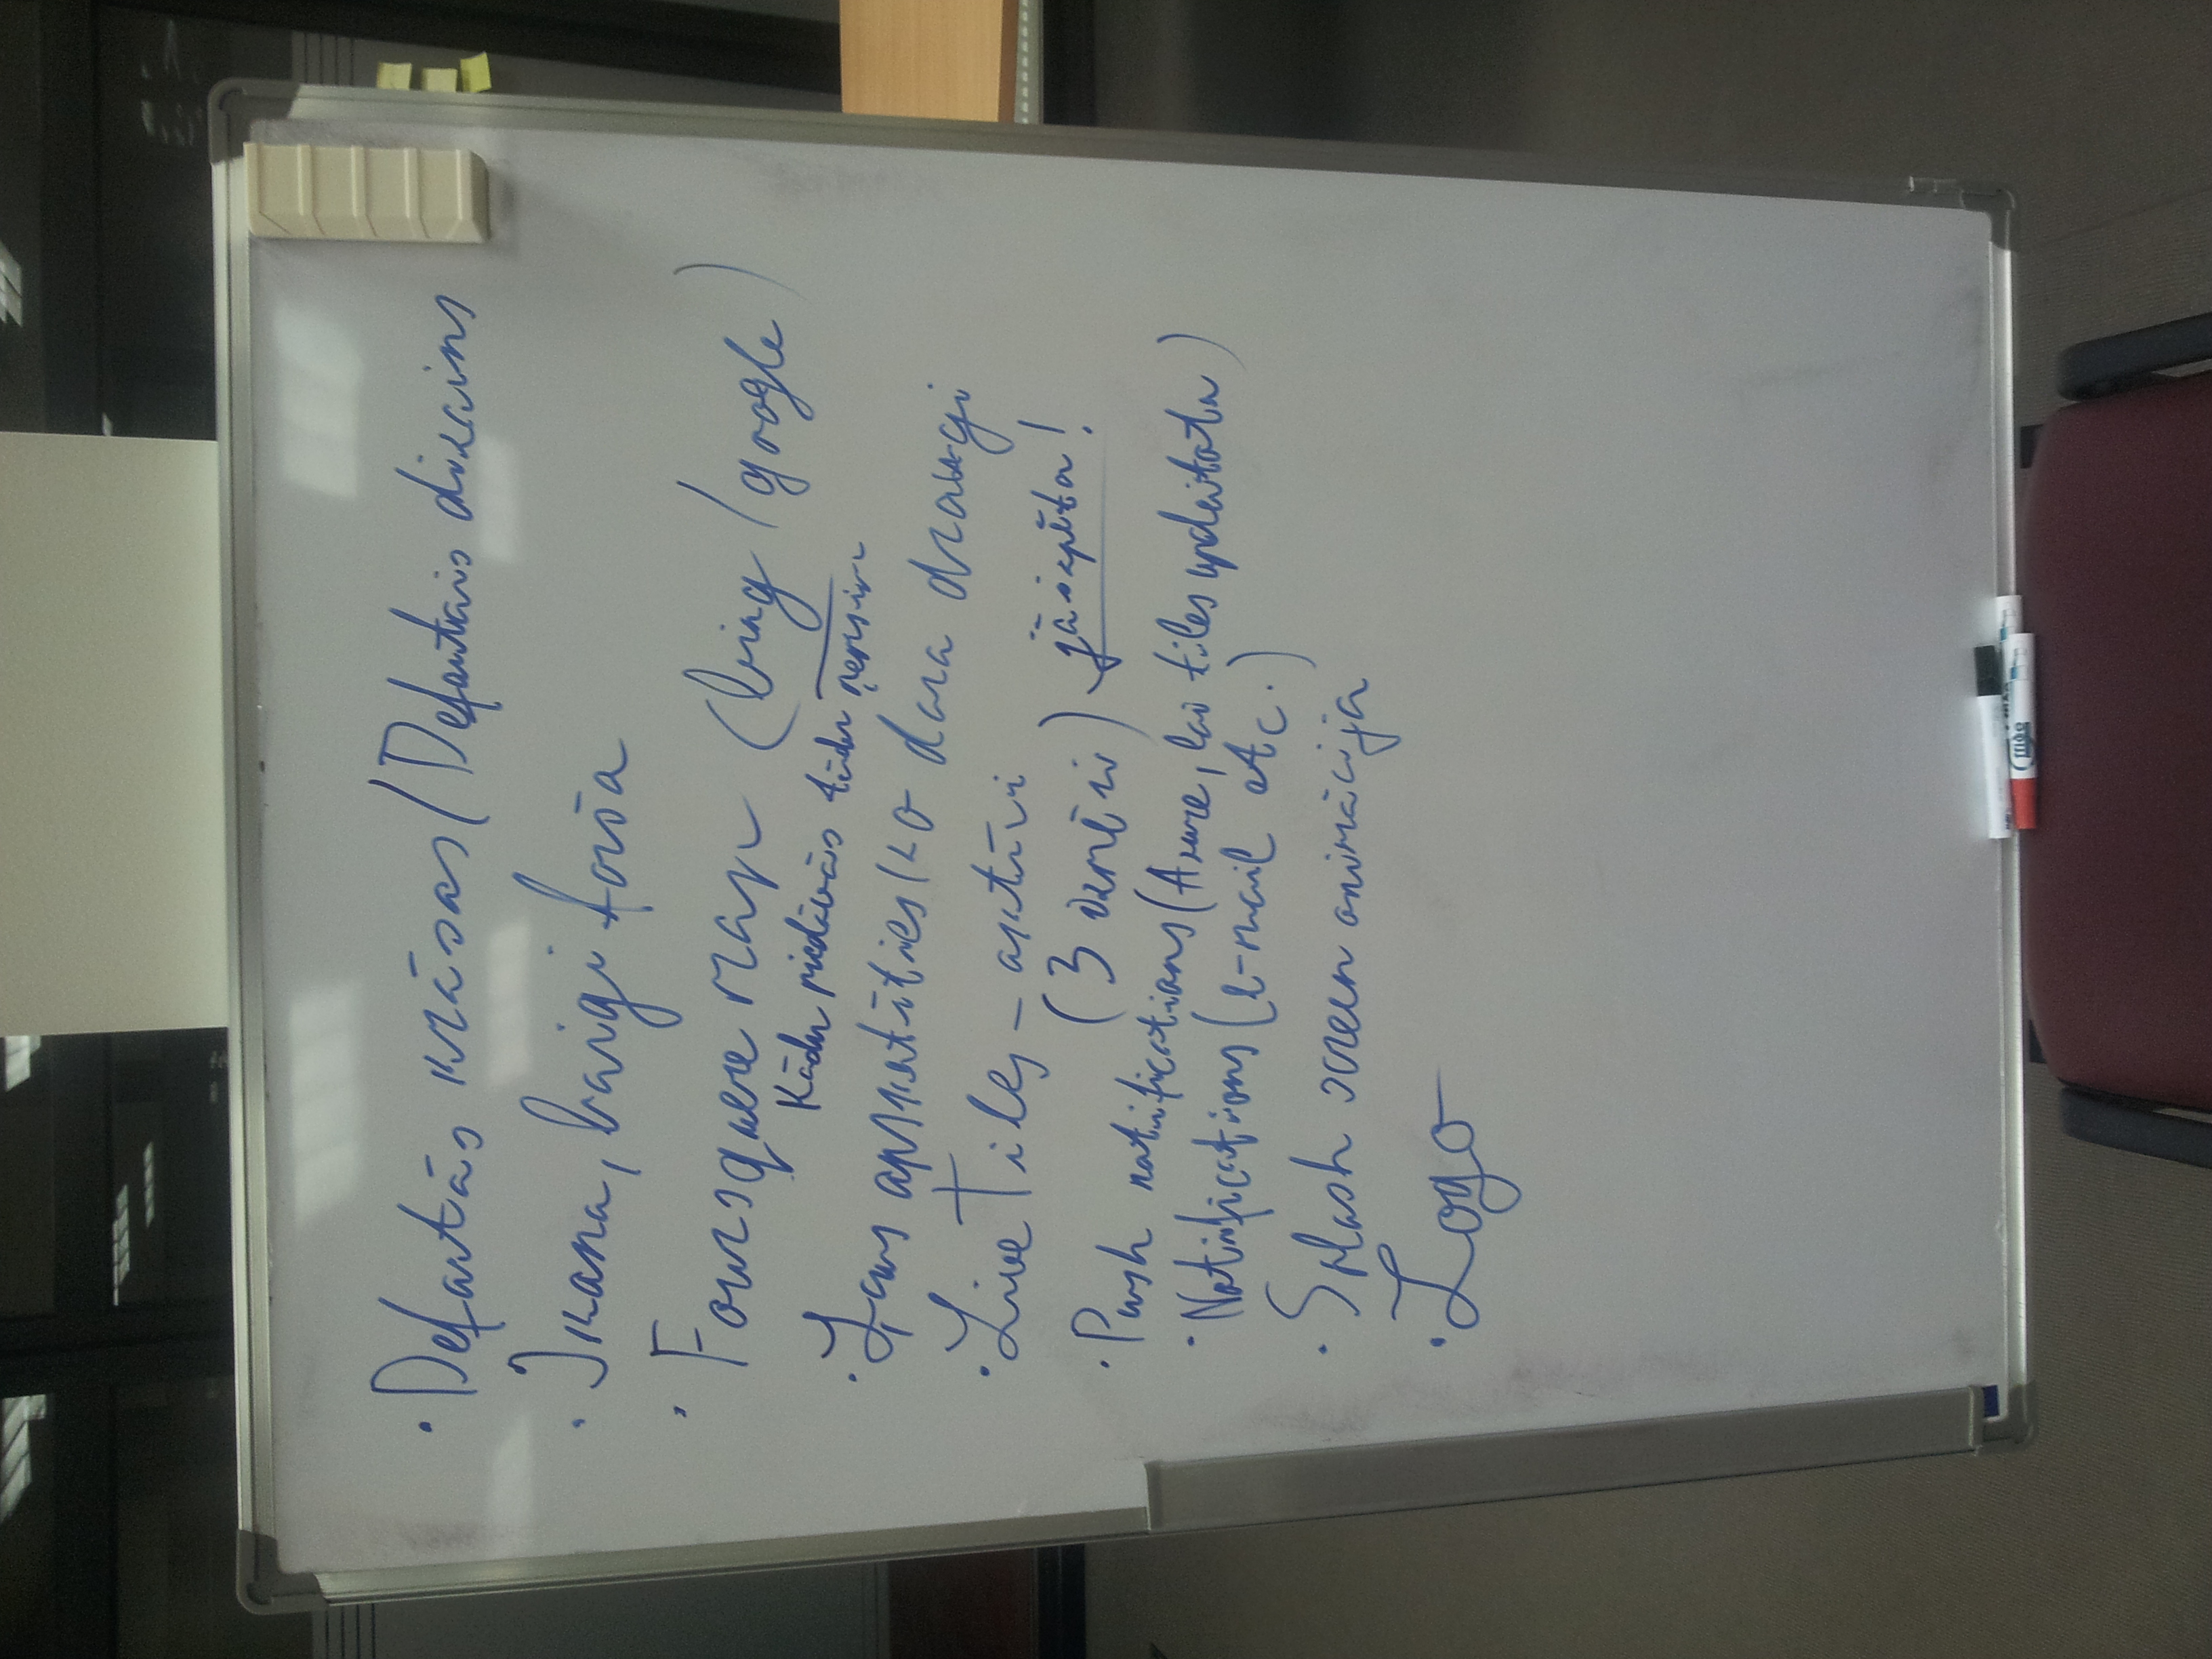 · Defaultās krāsas / Defaultais dizains
· Ikona, baigi foršā
· Foursquere map (bing / google)
Kādu piedāvās tādu ņemsim
· Ļaus apskatīties ko dara draugi
· Live Tiles - aktīvi
(3 izmēri) jāizpēta!
· Push notifications (Azure, lai tiles updeitotu)
· Notifications (e-mail etc.)
· Splash screen animācija
· Logo